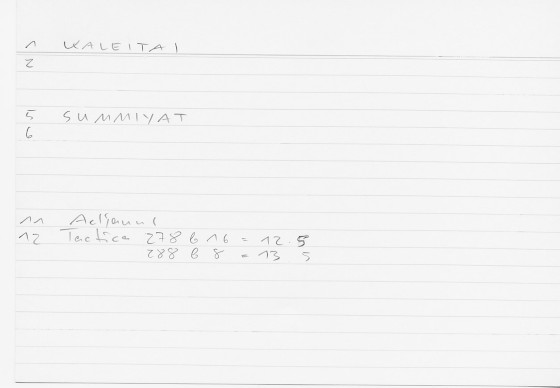 1 KALEITAI
2
5 SUMMIYAT
6
11
12 Tactica 278 b 16 = 12.5
288 b 8 = 13 5